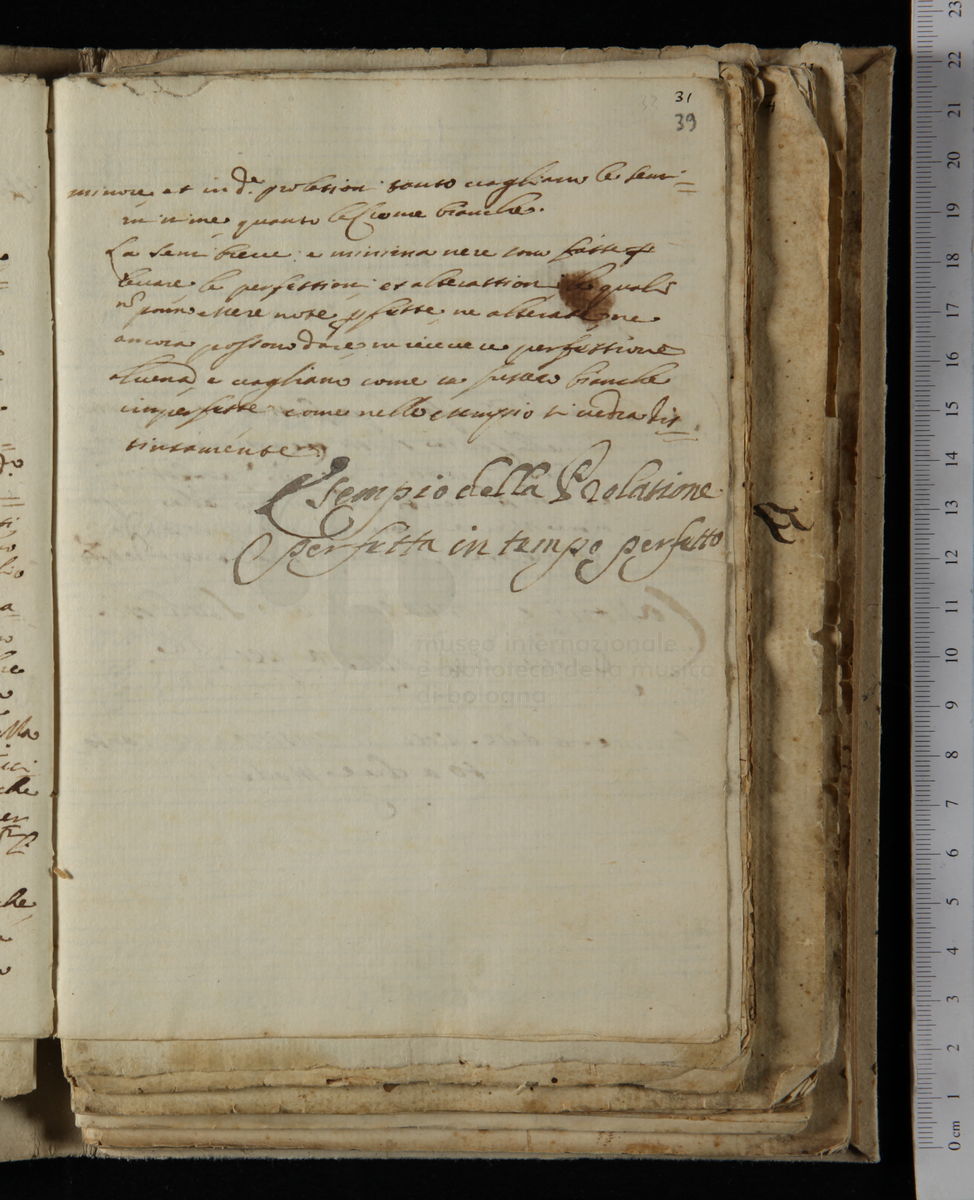 31
39
minore et in d.e prolation tanto vagliano le semi=
minime quanto le Crome bianche.
La semibreve e minima nere sono fatte p
levare le perfettioni et alterattioni le quali
n.o ponno essere note pfette ne alterate, ne
ancora possono dare ne ricevere perfettione
alcuna e vagliano come se fussero bianche
imperfette come nello esempio si vedra dis=
tintamente
Esempio della Prolatione
perfetta in tempo perfetto
museo internazionale
e biblioteca della musica
di bologna